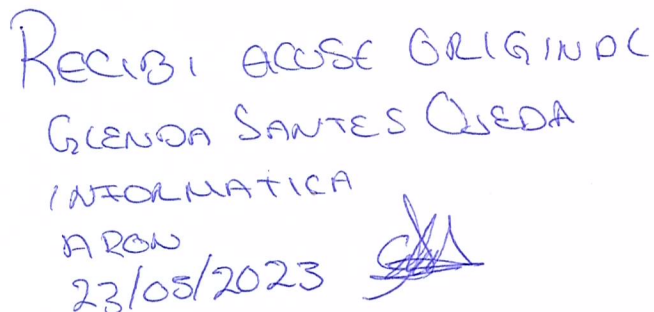 RECIBI ACUSE ORIGINAL
GLENDA SANTES OJEDA
INFORMATICA
ARON
23/05/2023